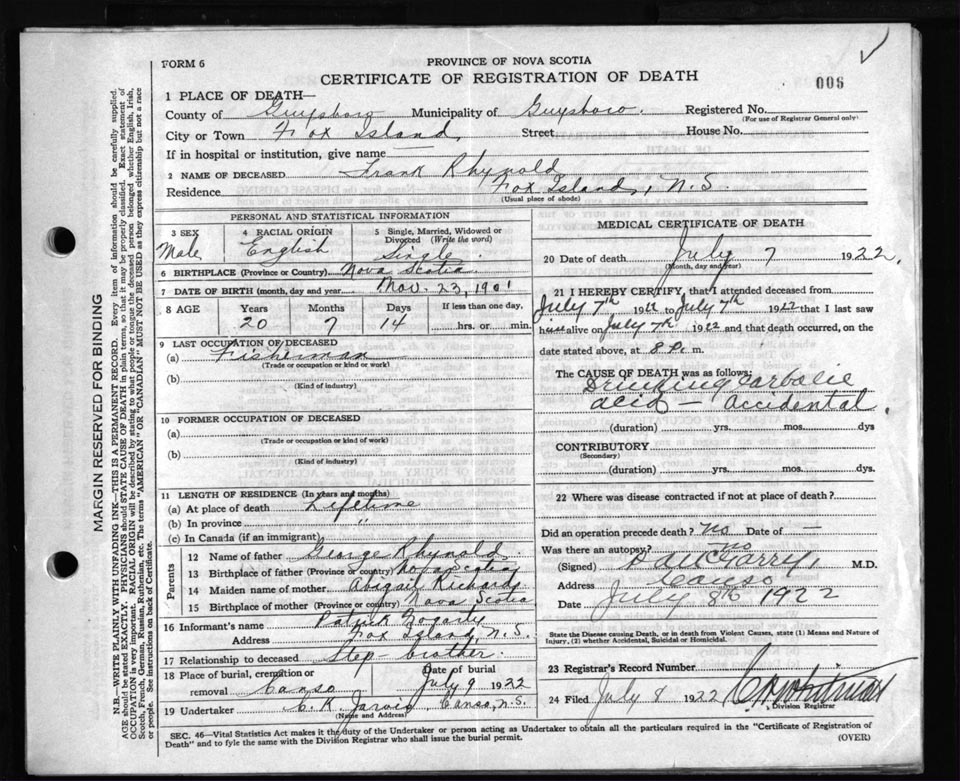 FORM 6
PROVINCE OF NOVA SCOTIA
CERTIFICATE OF REGISTRATION OF DEATH
006
1 PLACE OF DEATH—
County of Guysboro Municipality of Guysboro. Registered No.
(For use of Registrar General only)
City or Town Fox Island, Street House No.
If in hospital or institution, give name
2 NAME OF DECEASED Frank Rhynold
Residence Fox Island, N.S.
(Usual place of abode)
PERSONAL AND STATISTICAL INFORMATION
3 SEX Male
4 RACIAL ORIGIN English
5 Single, Married, Widowed or Divorced (Write the word) Single.
6 BIRTHPLACE (Province or Country) Nova Scotia
7 DATE OF BIRTH (month, day and year) Nov. 23, 1901
8 AGE Years Months Days If less than one day,
20 7 14 hrs. or min.
9 LAST OCCUPATION OF DECEASED
(a) Fisherman
(Trade or occupation or kind or work)
(b)
(Kind of industry)
10 FORMER OCCUPATION OF DECEASED
(a)
(Trade or occupation or kind of work)
(b)
(Kind of industry)
11 LENGTH OF RESIDENCE (In years and months)
(a) At place of death Lifetime
(b) In province "
(c) In Canada (if an immigrant)
Parents
12 Name of father George Rhynold.
13 Birthplace of father (Province or country) Nova Scotia
14 Maiden name of mother Abigail Richards
15 Birthplace of mother (Province or country) Nova Scotia
16 Informant's name Patrick Fogarty
Address Fox Island, N.S.
17 Relationship to deceased Step-brother.
18 Place of burial, cremation or removal Canso
Date of burial July 9 1922
19 Undertaker C. R. Jarvis, Canso, N.S.
(Name and Address)
MEDICAL CERTIFICATE OF DEATH
20 Date of death July 7 1922.
(Month, day and year)
21 I HEREBY CERTIFY, that I attended deceased from
July 7th 1922 to July 7th 1922 that I last saw
him alive on July 7th 1922, and that death occurred, on
date stated above, at 8 P. m.
The CAUSE OF DEATH was as follows:
Drinking Carbolic
acid — Accidental.
(duration) yrs. mos. dys
CONTRIBUTORY
(Secondary)
(duration) yrs. mos. dys.
22 Where was disease contracted if not at place of death?
Did an operation precede death? No Date of —
Was there an autopsy? No
(Signed) M.D.
Address Canso
Date July 8th 1922
State the Disease causing Death, or in death from Violent Causes, state (1) Means and Nature of
Injury, (2) whether Accidental, Suicidal or Homicidal.
23 Registrar's Record Number
24 Filed July 8 1922
Division Registrar
SEC. 46—Vital Statistics Act makes it the duty of the Undertaker or person acting as Undertaker to obtain all the particulars required in the "Certificate of Registration of
Death" and to fyle the same with the Division Registrar who shall issue the burial permit.
(OVER)
MARGIN RESERVED FOR BINDING
N.B.—WRITE PLAINLY WITH UNFADING INK—THIS IS A PERMANENT RECORD. Every item of information should be carefully supplied.
AGE should be stated EXACTLY. PHYSICIANS should STATE CAUSE OF DEATH in plain terms, so that it may be properly classified. Exact statement of
OCCUPATION is very important. RACIAL ORIGIN will be described by stating to what people or tongue the deceased person belonged whether English, Irish,
Scotch, French, German, Russian, Ruthenian, etc. The terms "AMERICAN" or "CANADIAN" MUST NOT BE USED as they express citizenship but not a race
or people. See instructions on back of Certificate.